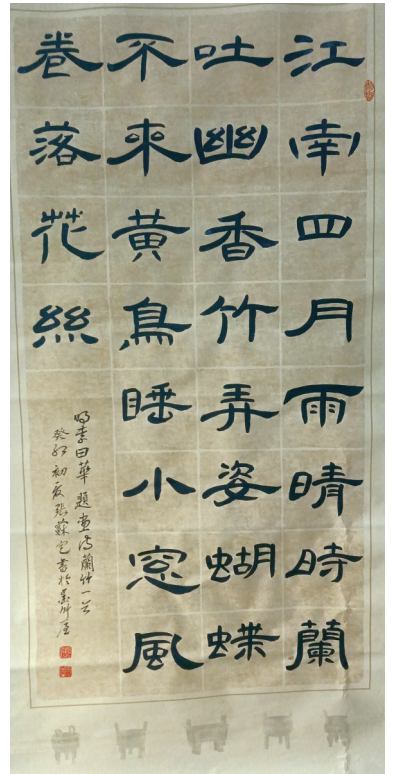 江南四月雨晴時蘭
吐幽香竹弄姿蝴蝶
不來黃鳥睡小窓風
卷落花絲
明李日華題畫詩蘭竹一首
癸卯初夏張蘇書於